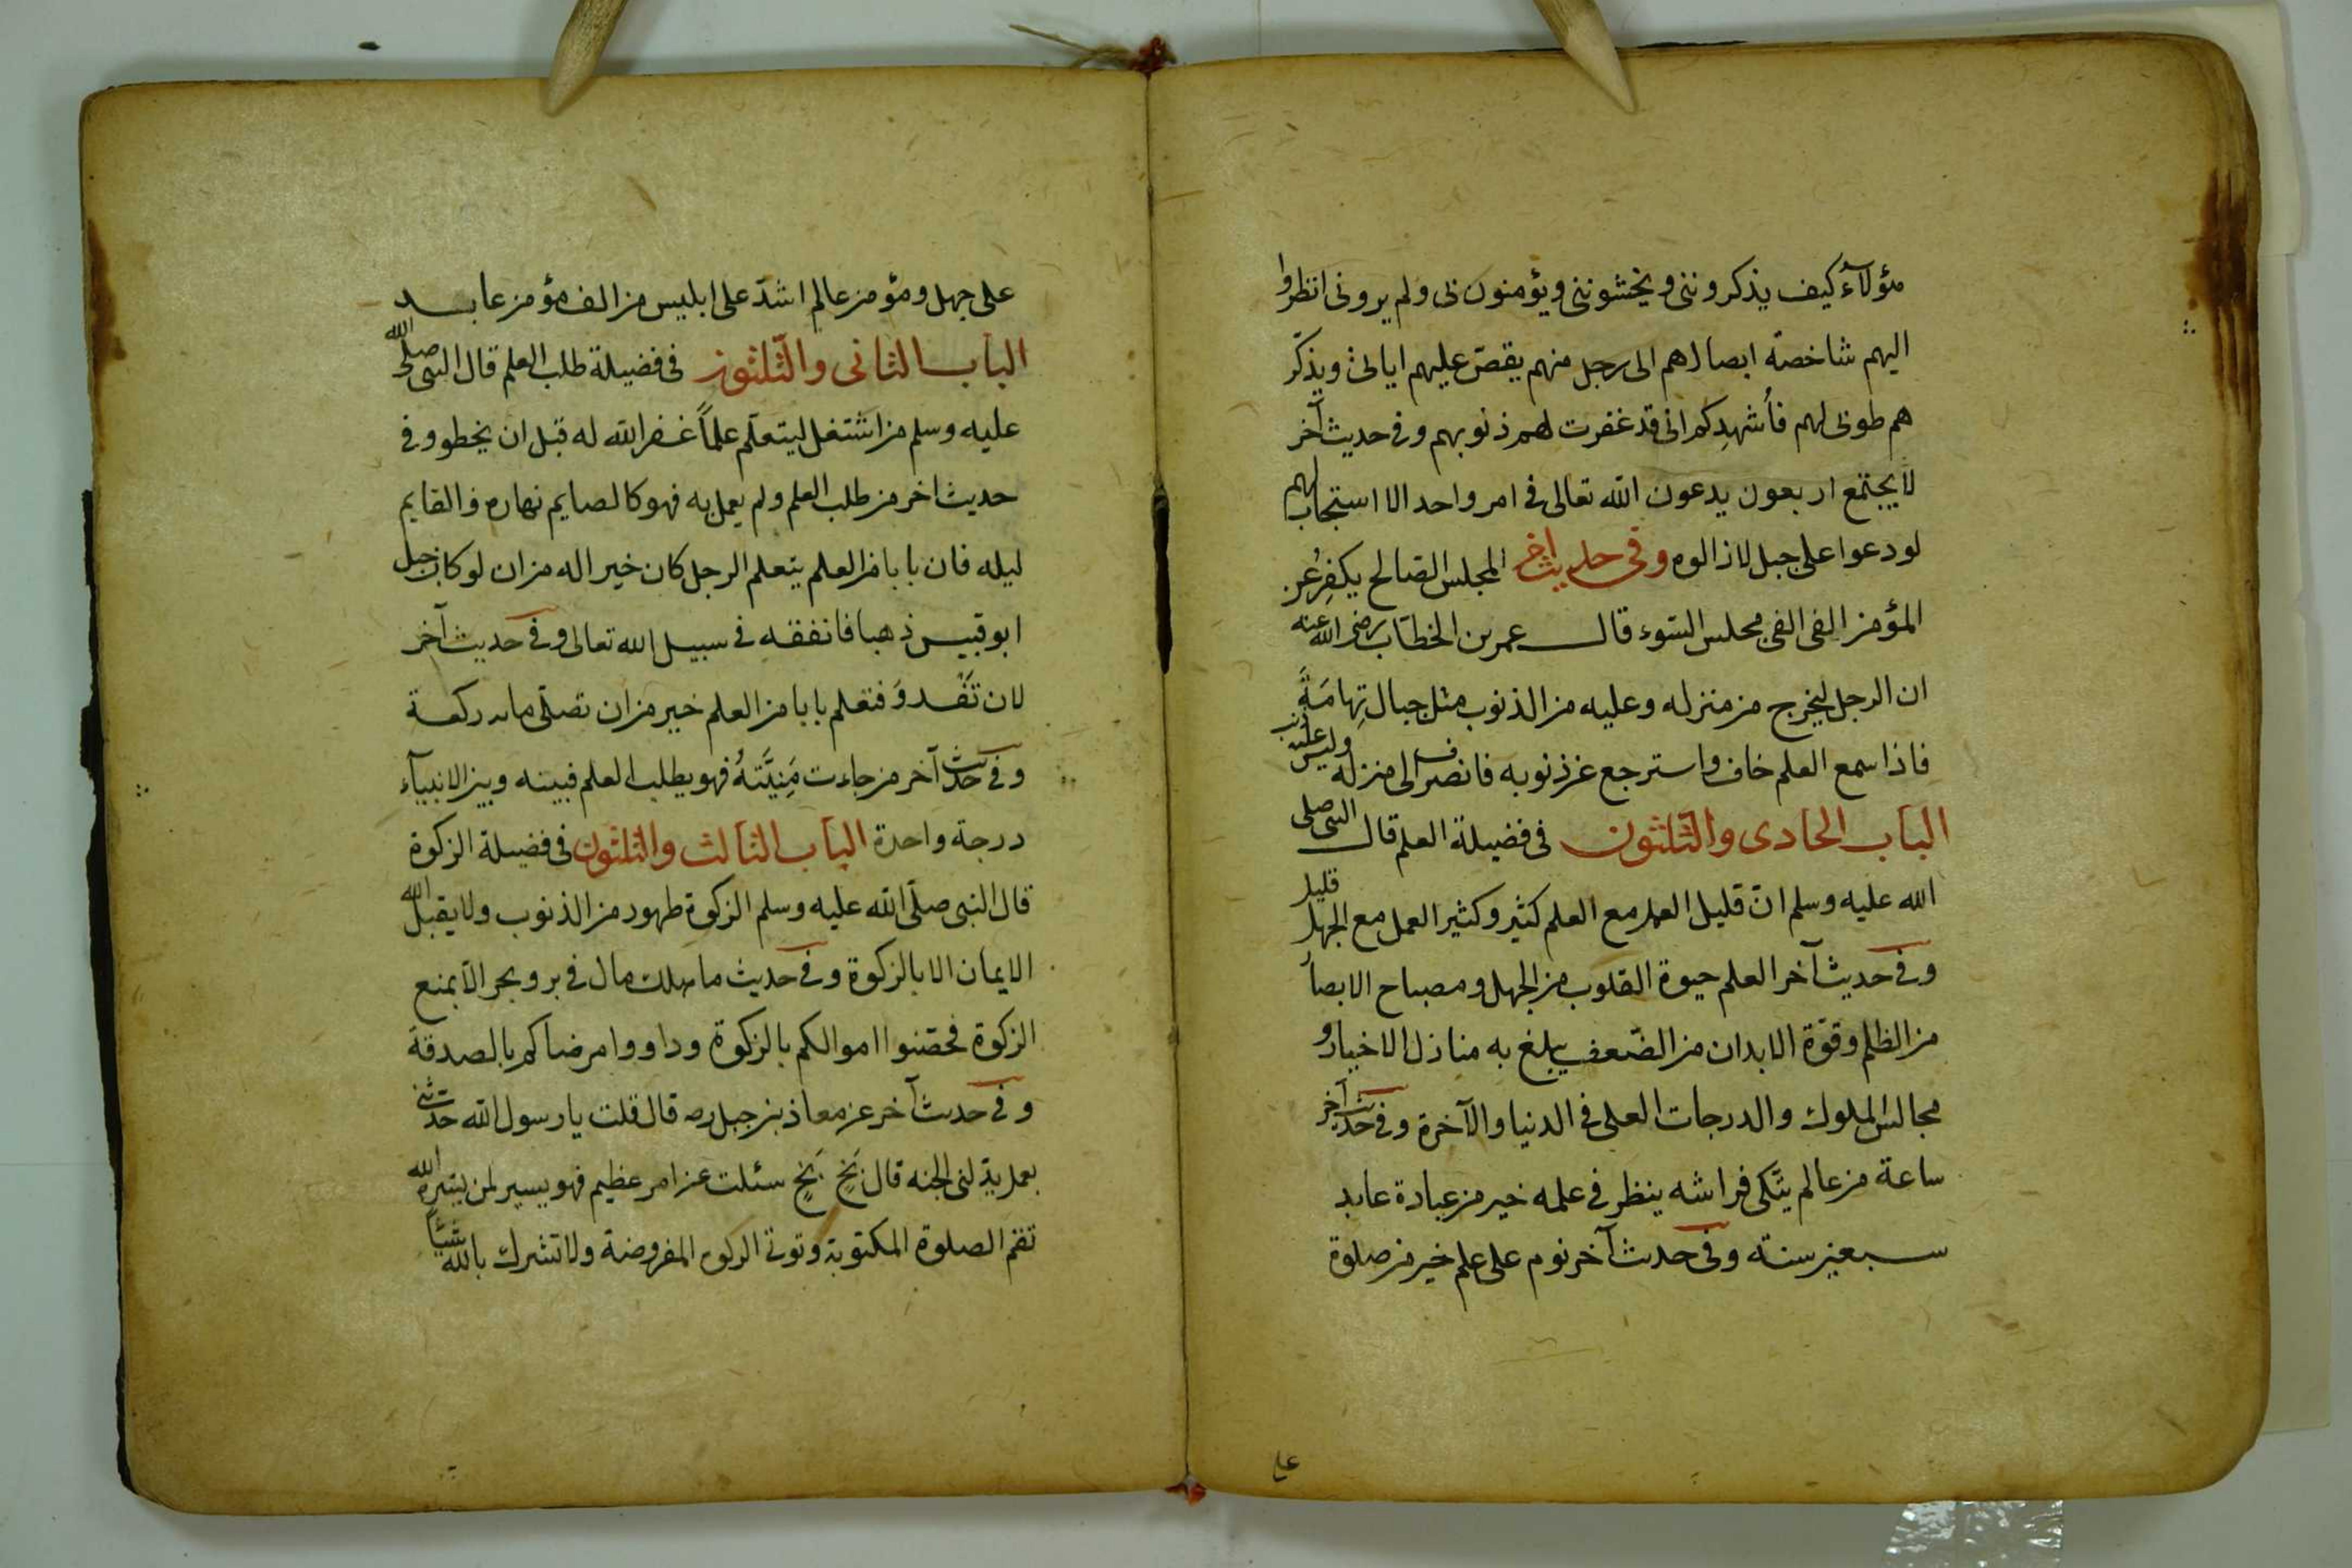 هؤلاء كيف يذكروننى ويخشوننى ويؤمنون بى ولم يرونى انظروا
اليهم شاخصة ابصارهم الى رجل منهم يقصّ عليهم اياتى ويذكّر
هم طوبى لهم فأشهدكم انى قد غفرت لهم ذنوبهم وفى حديث آخر
لا يجتمع اربعون يدعون الله تعالى فى امر واحد الا استجاب لهم
لو دعوا على جبل لازالوه وفى حديث اخر المجلس الصالح يكفر عن
المؤمن الفى الفى مجلس السّوء قال عمر بن الخطّاب رضى الله عنه
ان الرجل ليخرج من منزله وعليه من الذنوب مثل جبال تِهامَةَ
فاذا سمع العلم خاف واسترجع عن ذنوبه فانصرف الى منزله وليس عليه ذنب
الباب الحادى والثّلثون فى فضيلة العلم قال النبى صلى
الله عليه وسلم انّ قليل العمل مع العلم كثير وكثير العمل مع الجهل قليل
وفى حديث آخر العلم حيوة القلوب من الجهل ومصباح الابصار
من الظلم وقوّة الابدان من الضّعف يبلغ به منازل الاخيار و
مجالس الملوك والدرجات العلى فى الدنيا والآخرة وفى حديث آخر
ساعة من عالم يتّكى فراشه ينظر فى علمه خير من عبادة عابد
سبعين سنة وفى حديث آخر نوم على علم خير من صلوة
على
على جهل ومؤمن عالم اشدّ على ابليس من الف مؤمن عابد
الباب الثانى والثّلثون فى فضيلة طلب العلم قال النبى صلى الله
عليه وسلم من اشتغل ليتعلّم علماً غفر الله له قبل ان يخطو وفى
حديث اخر من طلب العلم ولم يعمل به فهو كالصايم نهاره والقايم
ليله فان بابا من العلم يتعلم الرجل كان خيرا له من ان لو كان جبل
ابو قبيس ذهبا فانفقه فى سبيل الله تعالى وفى حديث آخر
لان تَغْدوَ فتعلم بابا من العلم خير من ان تصلّى مايه ركعة
وفى حديث آخر من جاءت مَنِيَّتهُ فهو يطلب العلم فبينه وبين الانبيآء
درجة واحدة الباب الثالث والثلثون فى فضيلة الزكوة
قال النبى صلّى الله عليه وسلم الزكوة طهور من الذنوب ولا يقبل الله
الايمان الا بالزكوة وفى حديث ما هلك مال فى بر وبحر الّا بمنع
الزكوة فحصّنوا اموالكم بالزكوة وداووا مرضاكم بالصدقة
وفى حديث آخر عن معاذ بن جبل رضه قال قلت يا رسول الله حدثنى
بعمل يدخلنى الجنه قال بَخٍ بَخٍ سئلت عن امر عظيم فهو يسير لمن يسّره الله
تقم الصلوة المكتوبة وتوتى الزكوه المفروضة ولا تشرك بالله شيئاً